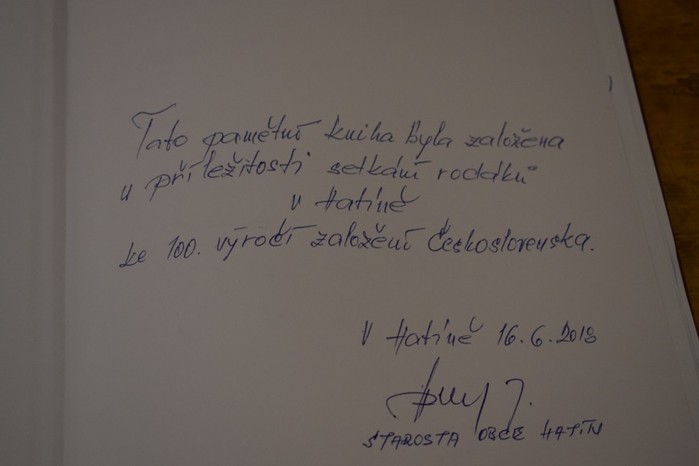 Tato pamětní kniha byla založena
u příležitosti setkání rodáků
v Hatíně
ke 100. výročí založení Československa.
V Hatíně 16.6.2018
STAROSTA OBCE HATÍN